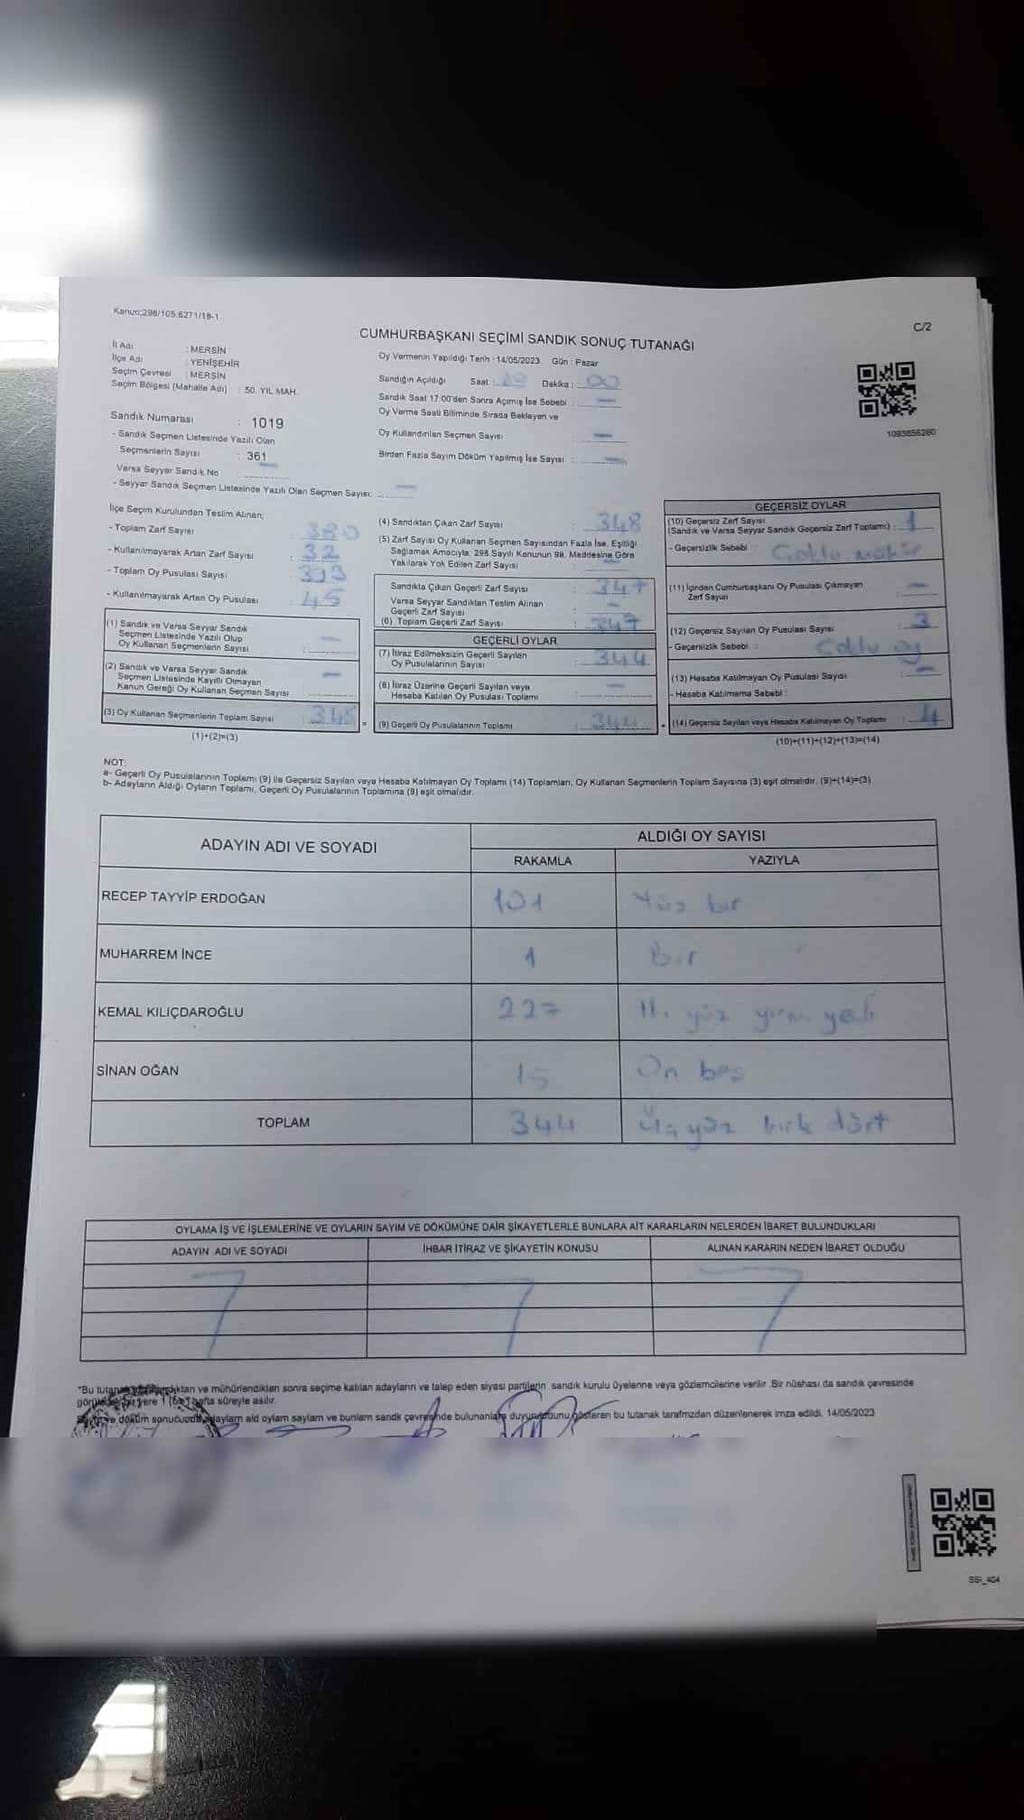 Kanun:298/105.6271/18-1
C/2
CUMHURBAŞKANI SEÇİMİ SANDIK SONUÇ TUTANAĞI
İl Adı : MERSİN
İlçe Adı : YENİŞEHİR
Seçim Çevresi : MERSİN
Seçim Bölgesi (Mahalle Adı) : 50. YIL MAH.
Sandık Numarası : 1019
- Sandık Seçmen Listesinde Yazılı Olan
Seçmenlerin Sayısı : 361
Varsa Seyyar Sandık No
- Seyyar Sandık Seçmen Listesinde Yazılı Olan Seçmen Sayısı:
Oy Vermenin Yapıldığı Tarih : 14/05/2023 Gün : Pazar
Sandığın Açıldığı Saat : Dakika : 00
Sandık Saat 17:00'den Sonra Açımış İse Sebebi :
Oy Verme Saati Bitiminde Sırada Bekleyen ve
Oy Kullandırılan Seçmen Sayısı :
Birden Fazla Sayım Döküm Yapılmış İse Sayısı :
1093856260
İlçe Seçim Kurulundan Teslim Alınan;
- Toplam Zarf Sayısı : 380
- Kullanılmayarak Artan Zarf Sayısı : 32
- Toplam Oy Pusulası Sayısı : 393
- Kullanılmayarak Artan Oy Pusulası : 45
(1) Sandık ve Varsa Seyyar Sandık
Seçmen Listesinde Yazılı Olup
Oy Kullanan Seçmenlerin Sayısı :
(2) Sandık ve Varsa Seyyar Sandık
Seçmen Listesinde Kayıtlı Olmayan
Kanun Gereği Oy Kullanan Seçmen Sayısı :
(3) Oy Kullanan Seçmenlerin Toplam Sayısı : 348
(1)+(2)=(3)
(4) Sandıktan Çıkan Zarf Sayısı : 348
(5) Zarf Sayısı Oy Kullanan Seçmen Sayısından Fazla İse, Eşitliği
Sağlamak Amacıyla; 298 Sayılı Kanunun 98. Maddesine Göre
Yakılarak Yok Edilen Zarf Sayısı :
Sandıkta Çıkan Geçerli Zarf Sayısı : 347
Varsa Seyyar Sandıktan Teslim Alınan
Geçerli Zarf Sayısı :
(6) Toplam Geçerli Zarf Sayısı : 347
GEÇERLİ OYLAR
(7) İtiraz Edilmeksizin Geçerli Sayılan
Oy Pusulalarının Sayısı : 344
(8) İtiraz Üzerine Geçerli Sayılan veya
Hesaba Katılan Oy Pusulası Toplamı :
(9) Geçerli Oy Pusulalarının Toplamı : 344
GEÇERSİZ OYLAR
(10) Geçersiz Zarf Sayısı
(Sandık ve Varsa Seyyar Sandık Geçersiz Zarf Toplamı) : 1
- Geçersizlik Sebebi :
(11) İçinden Cumhurbaşkanı Oy Pusulası Çıkmayan
Zarf Sayısı :
(12) Geçersiz Sayılan Oy Pusulası Sayısı : 3
- Geçersizlik Sebebi : Çoklu oy
(13) Hesaba Katılmayan Oy Pusulası Sayısı :
- Hesaba Katılmama Sebebi :
(14) Geçersiz Sayılan veya Hesaba Katılmayan Oy Toplamı : 4
(10)+(11)+(12)+(13)=(14)
NOT:
a- Geçerli Oy Pusulalarının Toplamı (9) ile Geçersiz Sayılan veya Hesaba Katılmayan Oy Toplamı (14) Toplamları, Oy Kullanan Seçmenlerin Toplam Sayısına (3) eşit olmalıdır. (9)+(14)=(3)
b- Adayların Aldığı Oyların Toplamı, Geçerli Oy Pusulalarının Toplamına (9) eşit olmalıdır.
ADAYIN ADI VE SOYADI ALDIĞI OY SAYISI
RAKAMLA YAZIYLA
RECEP TAYYİP ERDOĞAN 101 Yüz bir
MUHARREM İNCE 1 Bir
KEMAL KILIÇDAROĞLU 227 yüz yedi
SİNAN OĞAN 15 On beş
TOPLAM 344 Üç yüz kırk dört
OYLAMA İŞ VE İŞLEMLERİNE VE OYLARIN SAYIM VE DÖKÜMÜNE DAİR ŞİKAYETLERLE BUNLARA AİT KARARLARIN NELERDEN İBARET BULUNDUKLARI
ADAYIN ADI VE SOYADI İHBAR İTİRAZ VE ŞİKAYETİN KONUSU ALINAN KARARIN NEDEN İBARET OLDUĞU
"Bu ve mühürlendikten sonra seçime katılan adayların ve talep eden siyasi partilerin sandık kurulu üyelerine veya gözlemcilerine verilir. Bir nüshası da sandık çevresinde
yere 1 hafta süreyle asılır.
döküm oylam saylam ve bunlarn sandk çevresinde bulunanlara gösteren bu tutanak tarafmzdan düzenlenerek imza edildi. 14/05/2023
SSI_404